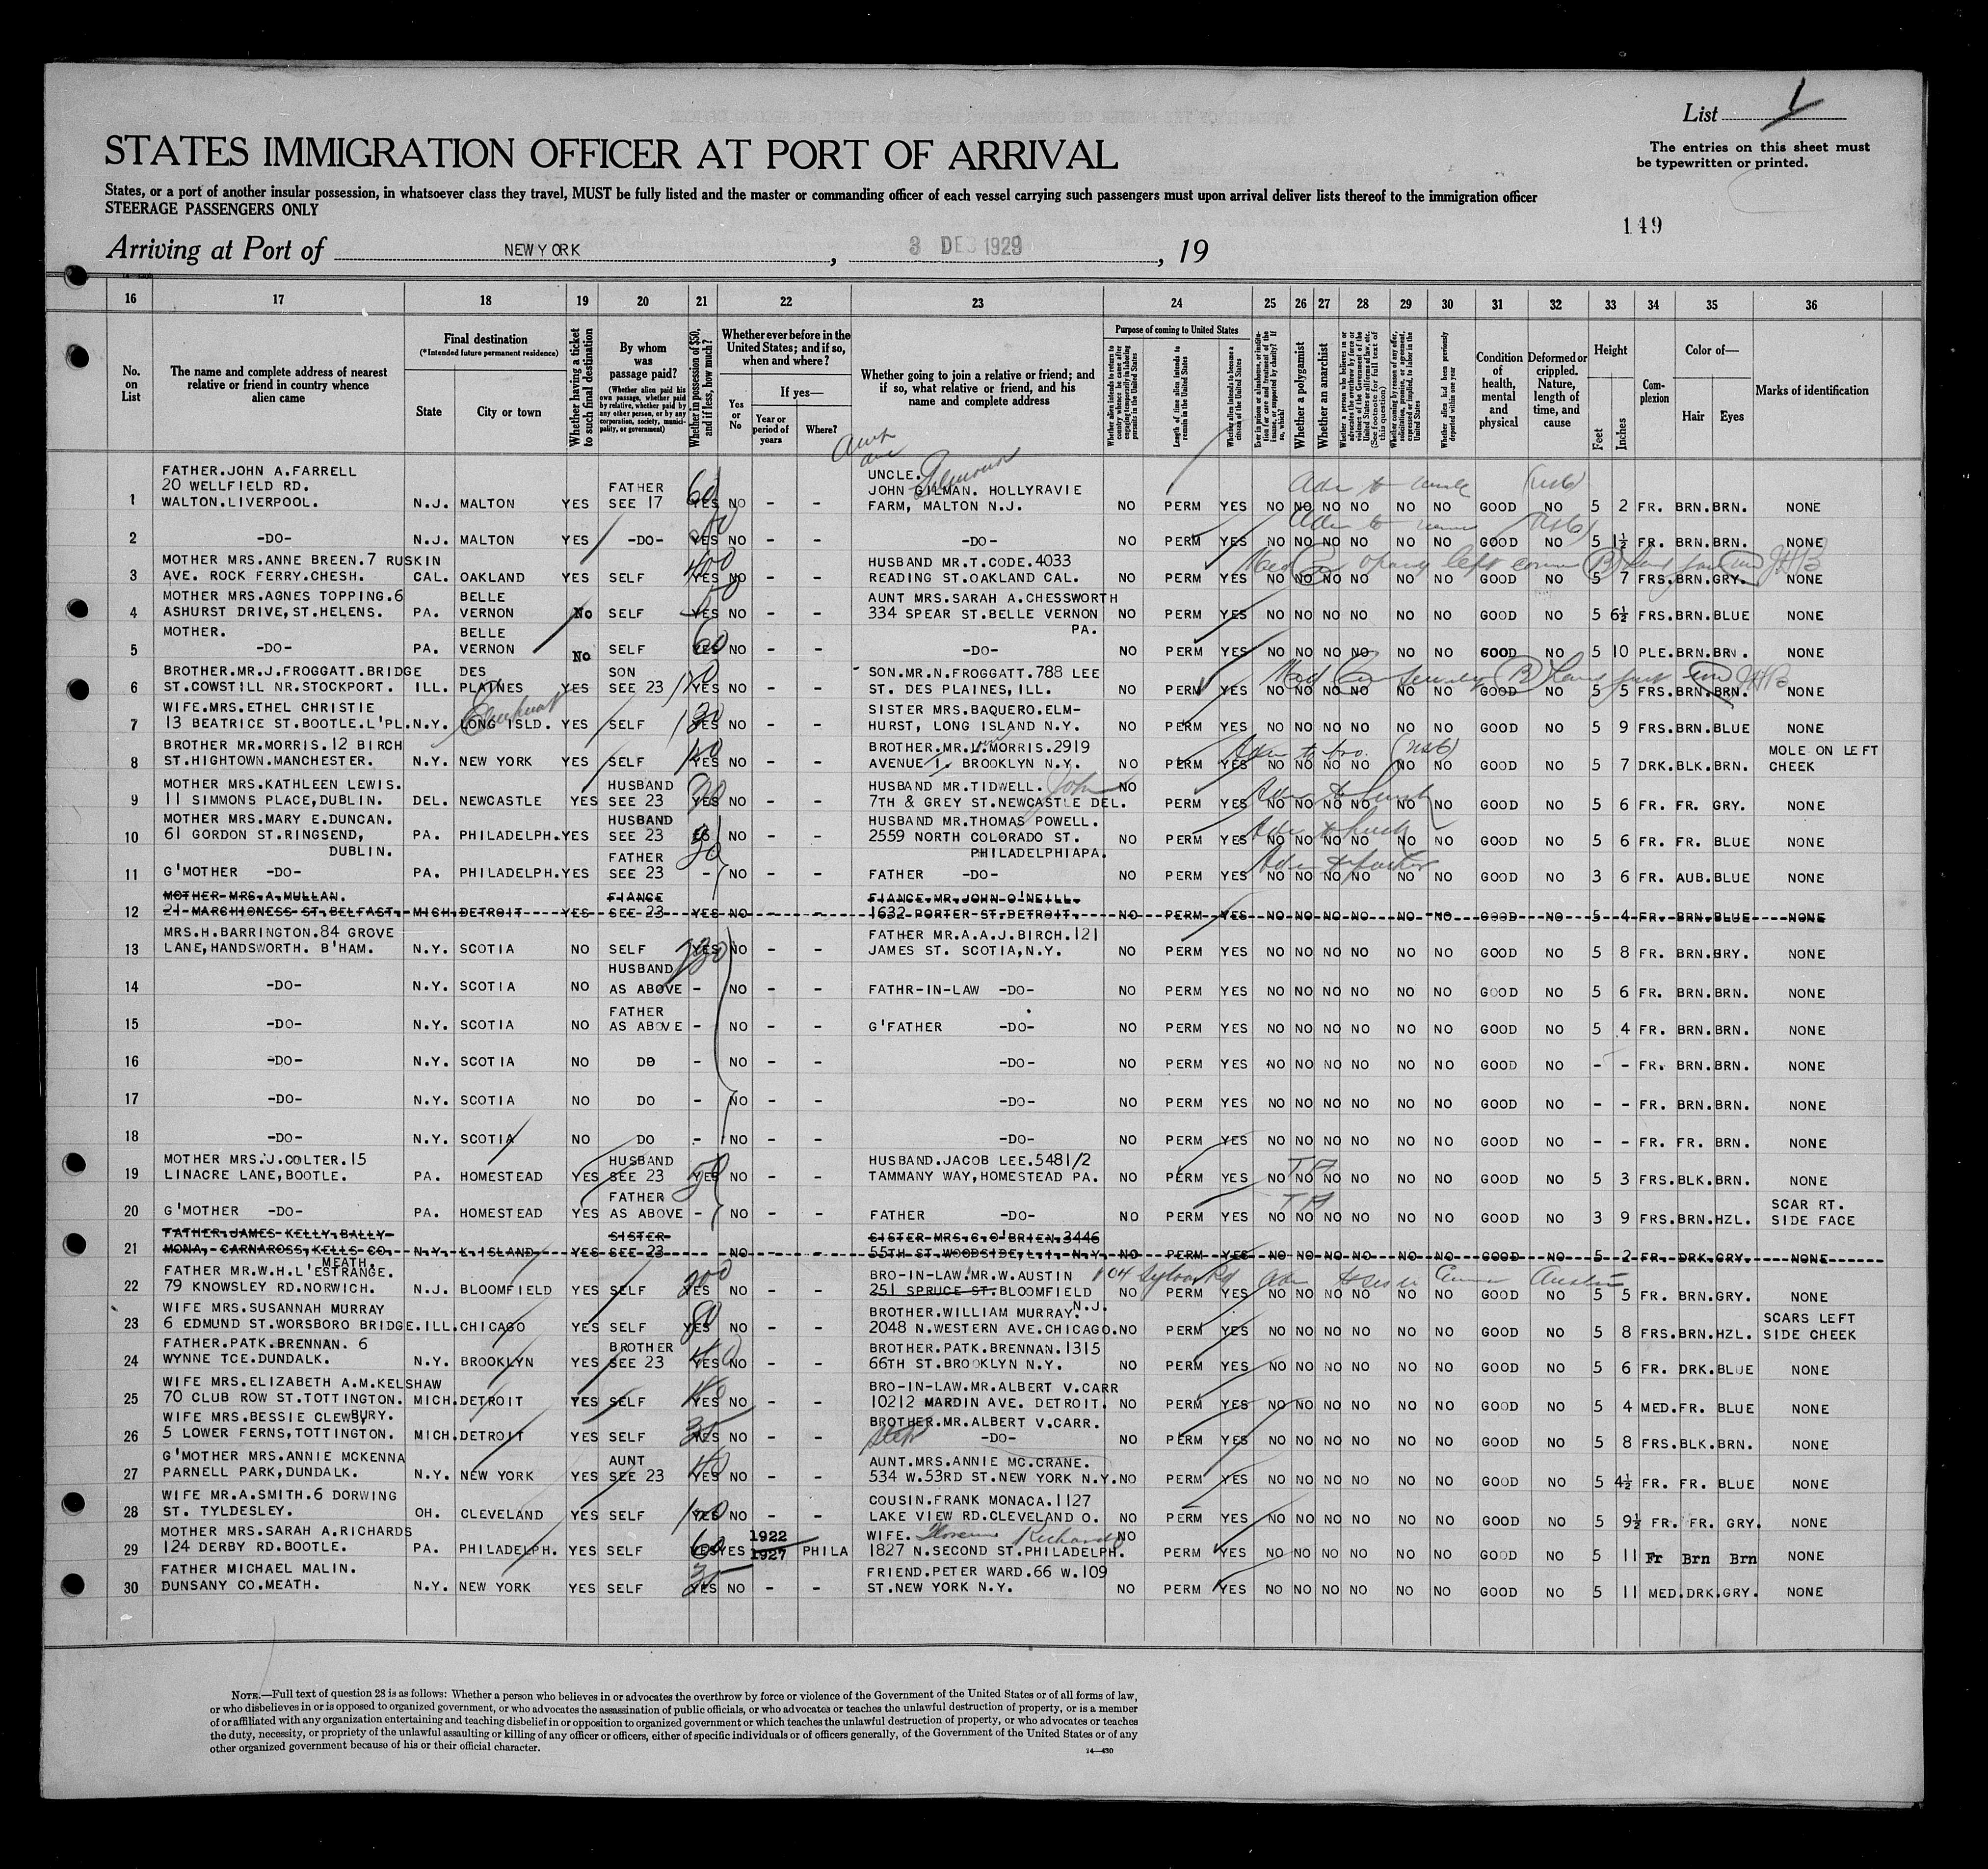 List 1
The entries on this sheet must
be typewritten or printed.
STATES IMMIGRATION OFFICER AT PORT OF ARRIVAL
States, or a port of another insular possession, in whatsoever class they travel, MUST be fully listed and the master or commanding officer of each vessel carrying such passengers must upon arrival deliver lists thereof to the immigration officer
STEERAGE PASSENGERS ONLY
149
Arriving at Port of NEW YORK , 3 DEC 1929 , 19
16 17 18 19 20 21 22 23 24 25 26 27 28 29 30 31 32 33 34 35 36
No. on List
The name and complete address of nearest relative or friend in country whence alien came
Final destination
(*Intended future permanent residence)
State
City or town
Whether having a ticket to such final destination
By whom was passage paid?
(Whether alien paid his own passage, whether paid by relative, whether paid by any other person, or by any corporation, society, municipality, or government)
Whether in possession of $50, and if less, how much?
Whether ever before in the United States; and if so, when and where?
Yes or No
If yes—
Year or period of years
Where?
Whether going to join a relative or friend; and if so, what relative or friend, and his name and complete address
Purpose of coming to United States
Length of time alien intends to remain in the United States
Whether alien intends to become a citizen of the United States
Whether a polygamist
Whether an anarchist
Condition of health, mental and physical
Deformed or crippled. Nature, length of time, and cause
Height
Feet
Inches
Complexion
Color of—
Hair
Eyes
Marks of identification
FATHER.JOHN A.FARRELL
20 WELLFIELD RD. FATHER UNCLE.
1 WALTON.LIVERPOOL. N.J. MALTON YES SEE 17 60 YES NO - - JOHN GILMAN. HOLLYRAVIE
FARM, MALTON N.J. NO PERM YES NO NO NO NO NO NO GOOD NO 5 2 FR. BRN. BRN. NONE
2 -DO- N.J. MALTON YES -DO- YES NO - - -DO- NO PERM YES NO NO NO NO NO NO GOOD NO 5 1½ FR. BRN. BRN. NONE
MOTHER MRS.ANNE BREEN.7 RUSKIN HUSBAND MR.T.CODE.4033
3 AVE. ROCK FERRY.CHESH. CAL. OAKLAND YES SELF 400 YES NO - - READING ST.OAKLAND CAL. NO PERM YES NO NO NO NO NO NO GOOD NO 5 7 FRS. BRN. GRY. NONE
MOTHER MRS.AGNES TOPPING.6 BELLE AUNT MRS.SARAH A.CHESSWORTH
4 ASHURST DRIVE,ST.HELENS. PA. VERNON No SELF YES NO - - 334 SPEAR ST.BELLE VERNON NO PERM YES NO NO NO NO NO NO GOOD NO 5 6½ FRS. BRN. BLUE NONE
MOTHER. BELLE PA.
5 -DO- PA. VERNON No SELF 60 YES NO - - -DO- NO PERM YES NO NO NO NO NO NO GOOD NO 5 10 PLE. BRN. BRN. NONE
BROTHER.MR.J.FROGGATT.BRIDGE DES SON SON.MR.N.FROGGATT.788 LEE
6 ST.COWSTILL NR.STOCKPORT. ILL. PLAINES YES SEE 23 YES NO - - ST. DES PLAINES, ILL. NO PERM YES NO NO NO NO NO NO GOOD NO 5 5 FRS. BRN. BRN. NONE
WIFE.MRS.ETHEL CHRISTIE Elmhurst SISTER MRS.BAQUERO.ELM-
7 13 BEATRICE ST.BOOTLE.L'PL. N.Y. LONG ISLD. YES SELF YES NO - - HURST, LONG ISLAND N.Y. NO PERM YES NO NO NO NO NO NO GOOD NO 5 9 FRS. BRN. BLUE NONE
BROTHER MR.MORRIS.12 BIRCH BROTHER.MR. MORRIS.2919 MOLE ON LEFT
8 ST.HIGHTOWN.MANCHESTER. N.Y. NEW YORK YES SELF YES NO - - AVENUE I. BROOKLYN N.Y. NO PERM YES NO NO NO NO NO NO GOOD NO 5 7 DRK. BLK. BRN. CHEEK
MOTHER MRS.KATHLEEN LEWIS. HUSBAND HUSBAND MR.TIDWELL. John
9 11 SIMMONS PLACE,DUBLIN. DEL. NEWCASTLE YES SEE 23 YES NO - - 7TH & GREY ST.NEWCASTLE DEL. NO PERM YES NO NO NO NO NO NO GOOD NO 5 6 FR. FR. GRY. NONE
MOTHER MRS.MARY E.DUNCAN. HUSBAND HUSBAND MR.THOMAS POWELL.
10 61 GORDON ST.RINGSEND, PA. PHILADELPH. YES SEE 23 NO - - 2559 NORTH COLORADO ST. NO PERM YES NO NO NO NO NO NO GOOD NO 5 6 FR. FR. BLUE NONE
DUBLIN. FATHER PHILADELPHIA PA.
11 G'MOTHER -DO- PA. PHILADELPH. YES SEE 23 - NO - - FATHER -DO- NO PERM YES NO NO NO NO NO NO GOOD NO 3 6 FR. AUB. BLUE NONE
MOTHER MRS.A.MULLAN. FIANCE FIANCE.MR.JOHN O'NEILL.
12 21 MARCHIONESS ST.BELFAST. MICH. DETROIT YES SEE 23 YES NO 1632 PORTER ST.DETROIT. NO PERM YES NO NO NO NO NO NO GOOD NO 5 4 FR. BRN. BLUE NONE
MRS.H.BARRINGTON.84 GROVE FATHER MR.A.A.J.BIRCH.121
13 LANE,HANDSWORTH. B'HAM. N.Y. SCOTIA NO SELF YES NO - - JAMES ST. SCOTIA,N.Y. NO PERM YES NO NO NO NO NO NO GOOD NO 5 8 FR. BRN. GRY. NONE
HUSBAND
14 -DO- N.Y. SCOTIA NO AS ABOVE - NO - - FATHR-IN-LAW -DO- NO PERM YES NO NO NO NO NO NO GOOD NO 5 6 FR. BRN. BRN. NONE
FATHER
15 -DO- N.Y. SCOTIA NO AS ABOVE - NO - - G'FATHER -DO- NO PERM YES NO NO NO NO NO NO GOOD NO 5 4 FR. BRN. BRN. NONE
16 -DO- N.Y. SCOTIA NO DO - NO - - -DO- NO PERM YES NO NO NO NO NO NO GOOD NO - - FR. BRN. BRN. NONE
17 -DO- N.Y. SCOTIA NO DO - NO - - -DO- NO PERM YES NO NO NO NO NO NO GOOD NO - - FR. BRN. BRN. NONE
18 -DO- N.Y. SCOTIA NO DO - NO - - -DO- NO PERM YES NO NO NO NO NO NO GOOD NO - - FR. FR. BRN. NONE
MOTHER MRS.J.COLTER.15 HUSBAND HUSBAND.JACOB LEE.5481/2
19 LINACRE LANE,BOOTLE. PA. HOMESTEAD YES SEE 23 50 YES NO - - TAMMANY WAY,HOMESTEAD PA. NO PERM YES NO NO NO NO NO NO GOOD NO 5 3 FRS. BLK. BRN. NONE
FATHER SCAR RT.
20 G'MOTHER -DO- PA. HOMESTEAD YES AS ABOVE - NO - - FATHER -DO- NO PERM YES NO NO NO NO NO NO GOOD NO 3 9 FRS. BRN. HZL. SIDE FACE
FATHER.JAMES KELLY.BALLY- SISTER SISTER MRS.C.O'BRIEN.3446
21 MONA, CARNAROSS,KELLS CO. N.Y. L.ISLAND YES SEE 23 NO 55TH ST.WOODSIDE,L.I. N.Y. NO PERM YES NO NO NO NO NO NO GOOD NO 5 2 FR. DRK. GRY. NONE
MEATH.
FATHER MR.W.H.L'ESTRANGE. BRO-IN-LAW.MR.W.AUSTIN
22 79 KNOWSLEY RD.NORWICH. N.J. BLOOMFIELD YES SELF 200 YES NO - - 251 SPRUCE ST.BLOOMFIELD NO PERM YES NO NO NO NO NO NO GOOD NO 5 5 FR. BRN. GRY. NONE
N.J.
WIFE MRS.SUSANNAH MURRAY BROTHER.WILLIAM MURRAY. SCARS LEFT
23 6 EDMUND ST.WORSBORO BRIDGE. ILL. CHICAGO YES SELF YES NO - - 2048 N.WESTERN AVE.CHICAGO. NO PERM YES NO NO NO NO NO NO GOOD NO 5 8 FRS. BRN. HZL. SIDE CHEEK
FATHER.PATK.BRENNAN. 6 BROTHER BROTHER.PATK.BRENNAN.1315
24 WYNNE TCE.DUNDALK. N.Y. BROOKLYN YES SEE 23 40 YES NO - - 66TH ST.BROOKLYN N.Y. NO PERM YES NO NO NO NO NO NO GOOD NO 5 6 FR. DRK. BLUE NONE
WIFE MRS.ELIZABETH A.M.KELSHAW BRO-IN-LAW.MR.ALBERT V.CARR
25 70 CLUB ROW ST.TOTTINGTON. MICH. DETROIT YES SELF 40 YES NO - - 10212 MARDIN AVE. DETROIT. NO PERM YES NO NO NO NO NO NO GOOD NO 5 4 MED. FR. BLUE NONE
BURY.
WIFE MRS.BESSIE CLEWS, BROTHER.MR.ALBERT V.CARR.
26 5 LOWER FERNS,TOTTINGTON. MICH. DETROIT YES SELF YES NO - - Step -DO- NO PERM YES NO NO NO NO NO NO GOOD NO 5 8 FRS. BLK. BRN. NONE
G'MOTHER MRS.ANNIE MCKENNA AUNT AUNT.MRS.ANNIE MC.CRANE.
27 PARNELL PARK,DUNDALK. N.Y. NEW YORK YES SEE 23 40 YES NO - - 534 W.53RD ST.NEW YORK N.Y. NO PERM YES NO NO NO NO NO NO GOOD NO 5 4½ FR. FR. BLUE NONE
WIFE MR.A.SMITH.6 DORWING COUSIN.FRANK MONACA.1127
28 ST. TYLDESLEY. OH. CLEVELAND YES SELF YES NO - - LAKE VIEW RD.CLEVELAND O. NO PERM YES NO NO NO NO NO NO GOOD NO 5 9½ FR. FR. GRY. NONE
MOTHER MRS.SARAH A.RICHARDS 1922 WIFE. Florence Richards
29 124 DERBY RD.BOOTLE. PA. PHILADELPH. YES SELF 60 YES YES 1927 PHILA 1827 N.SECOND ST.PHILADELPH. NO PERM YES NO NO NO NO NO NO GOOD NO 5 11 Fr Brn Brn NONE
FATHER MICHAEL MALIN. FRIEND.PETER WARD.66 W.109
30 DUNSANY CO.MEATH. N.Y. NEW YORK YES SELF YES NO - - ST.NEW YORK N.Y. NO PERM YES NO NO NO NO NO NO GOOD NO 5 11 MED. DRK. GRY. NONE
NOTE.—Full text of question 28 is as follows: Whether a person who believes in or advocates the overthrow by force or violence of the Government of the United States or of all forms of law,
or who disbelieves in or is opposed to organized government, or who advocates the assassination of public officials, or who advocates or teaches the unlawful destruction of property, or is a member
of or affiliated with any organization entertaining and teaching disbelief in or opposition to organized government or which teaches the unlawful destruction of property, or who advocates or teaches
the duty, necessity, or propriety of the unlawful assaulting or killing of any officer or officers, either of specific individuals or of officers generally, of the Government of the United States or of any
other organized government because of his or their official character.
14—430